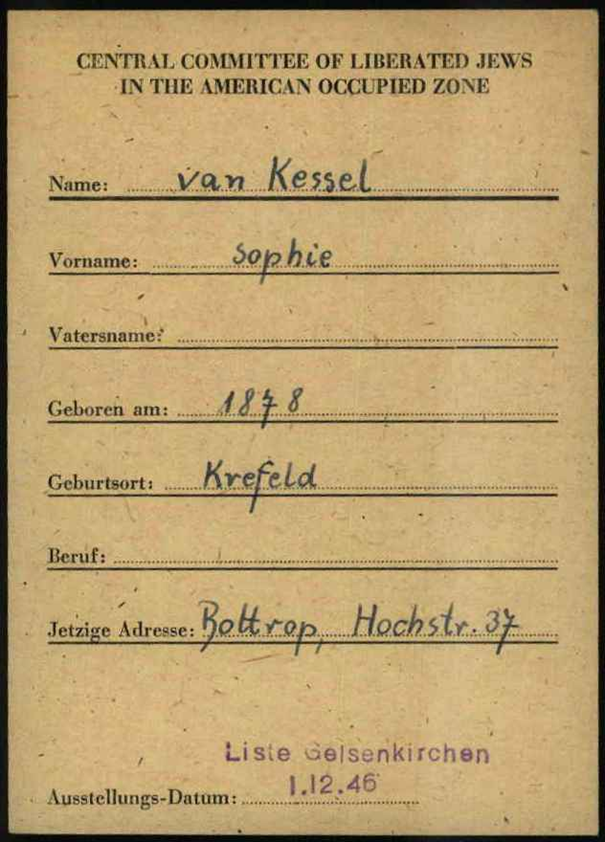 CENTRAL COMMITTEE OF LIBERATED JEWS
IN THE AMERICAN OCCUPIED ZONE
Name: van Kessel
Vorname: Sophie
Vatersname:
Geboren am: 1878
Geburtsort: Krefeld
Beruf:
Jetzige Adresse: Bottrop, Hochstr. 37
Liste Gelsenkirchen
1.12.46
Ausstellungs-Datum: